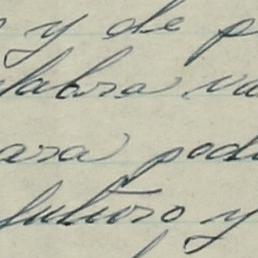 y de p
labra va
ara pod
futuro y